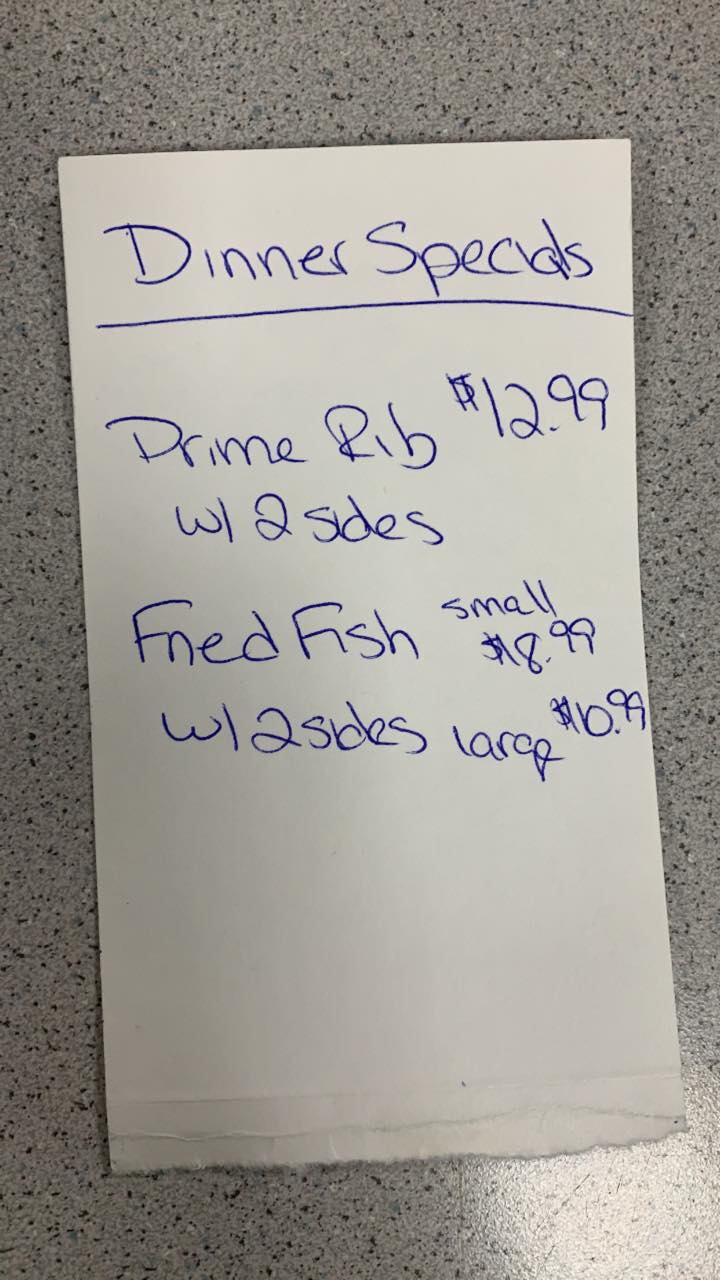 Dinner Specials
Prime Rib $12.99
w/ 2 sides
Fried Fish small
$8.99
w/ 2 sides large $10.99